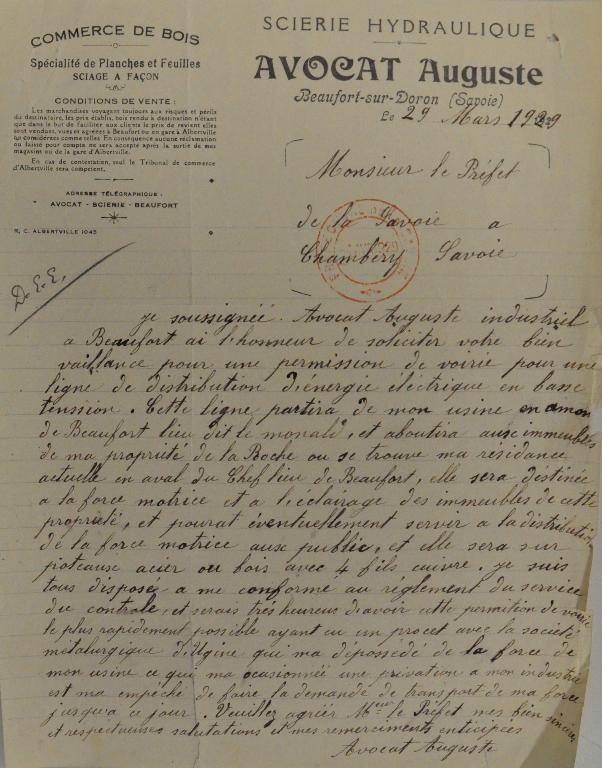 COMMERCE DE BOIS
Spécialité de Planches et Feuilles
SCIAGE A FAÇON
CONDITIONS DE VENTE :
Les marchandises voyagent toujours aux risques et périls
du destinataire, les prix établis, bois rendu à destination n'étant
que dans le but de faciliter aux clients le prix de revient elles
sont vendues, vues et agréées à Beaufort ou en gare à Albertville
qui considérées comme telles. En conséquence aucune réclamation
ou laissé pour compte ne sera accepté après la sortie de mes
magasins ou de la gare d'Albertville.
En cas de contestation, seul le Tribunal de commerce
d'Albertville sera compétent.
ADRESSE TÉLÉGRAPHIQUE :
AVOCAT - SCIERIE - BEAUFORT
R. C. ALBERTVILLE 1045
SCIERIE HYDRAULIQUE
AVOCAT Auguste
Beaufort-sur-Doron (Savoie)
Le 29 Mars 1929
Monsieur le Préfet
de la Savoie a
Chambéry Savoie
D.E.E.
je soussignée. Avocat Auguste industriel
a Beaufort ai l'honneur de soliciter votre bien
vaillance pour une permission de voirie pour une
ligne de distribution d'énergie électrique en basse
tenssion. Cette ligne partira de mon usine en amon
de Beaufort lieu dit le monali, et aboutira aux immeubles
de ma propriété de la Roche ou se trouve ma residance
actuelle en aval du Chef lieu de Beaufort, elle sera destinée
a la force motrice et a l'éclairage des immeubles de cette
propriété, et pourat éventuellement servir a la distribution
de la force motrice aux public, et elle sera sur
poteaux acier ou bois avec 4 fils cuivre. je suis
tous disposé a me conformé au réglement du service
du controle, et serais très heureux d'avoir cette permition de voirie
le plus rapidement possible ayant eu un procet avec la société
métalurgique d'Ugine qui ma dépossédé de la force de
mon usine ce qui ma ocasionnée une privation a mon industrie
est ma empeché de faire la demande de transport de ma force
jusqu'a ce jour. Veuillez agréer Mr le Préfet mes bien sincères
et respectueuses salutations et mes remerciments enticipées
Avocat Auguste